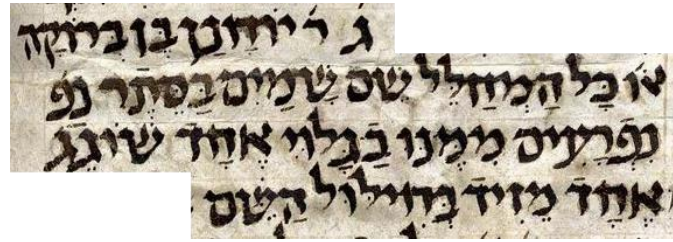 ג ר יוחנן בן ברוקה
או כל המחלל שם שמים בסתר נפ
נפרעים ממנו בגלוי אחד שוגג
אחד מזיד בחילול השם